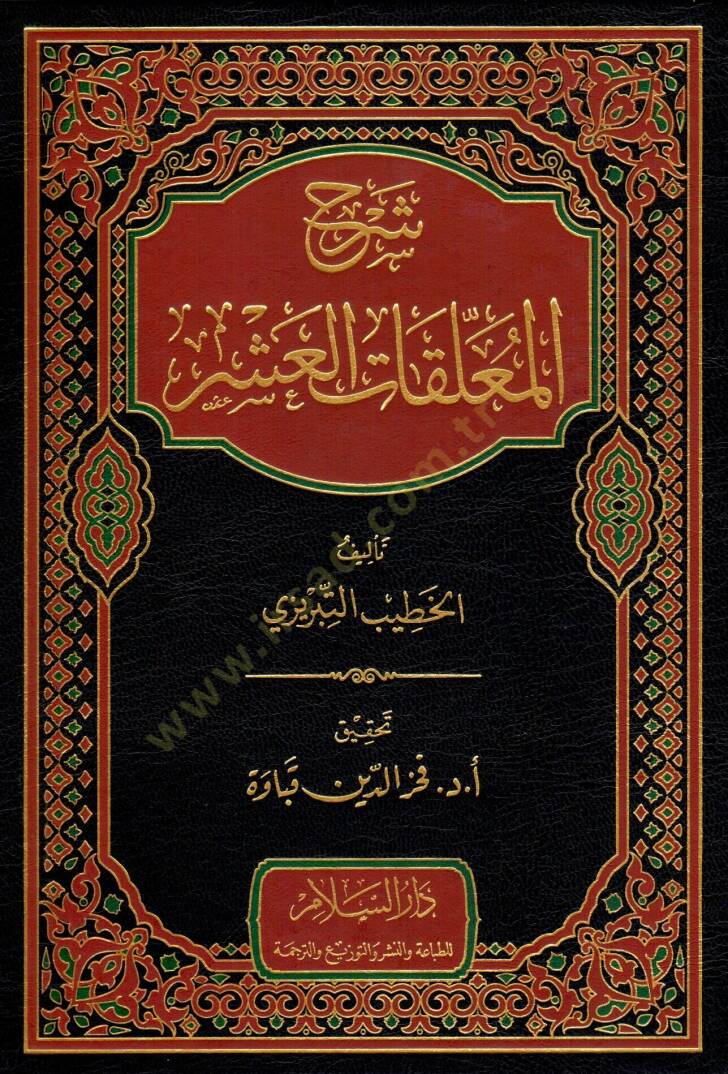 شرح
المُعلّقات العَشْر
تأليف
الخطيب التّبريزي
تحقيق
أ.د. فخر الدّين قباوة
دَارُ السَّلَام
للطباعة والنشر والتوزيع والترجمة